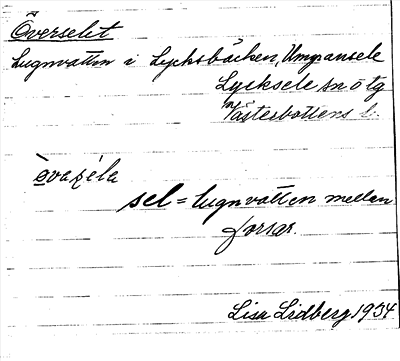 Överselet
Lugnvatten i Lycksbäcken, Umgransele
Lycksele sn o tg
Västerbottens l.
sel = lugnvatten mellan
forsar.
Lisa Lidberg 1934